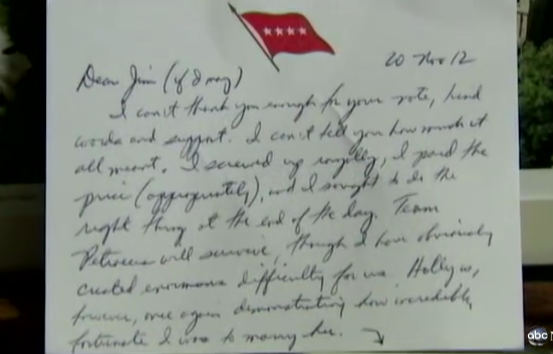 20 Nov 12
Dear Jim (if I may)
I can't thank you enough for your note, kind
words and support. I can't tell you how much it
all meant. I screwed up royally, I paid the
price (appropriately), and I sought to do the
right thing at the end of the day. Team
Petraeus will survive, though I have obviously
created enormous difficulty for us. Holly is,
however, once again demonstrating how incredibly
fortunate I was to marry her.
abc